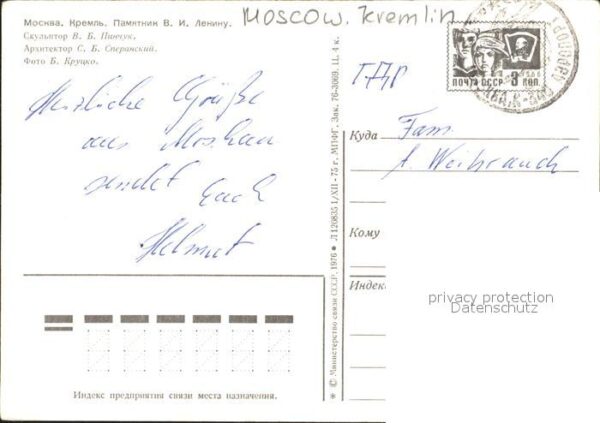 Москва. Кремль. Памятник В. И. Ленину.
Скульптор В. Б. Пинчук.
Архитектор С. Б. Сперанский.
Фото Б. Круцко.
Moscow. Kremlin
ПОЧТА СССР 3 КОП.
1966
ГДР
Herzliche Grüße
aus Moskau
sendet Euch
Helmut
Куда
Fam.
A. Weihrauch
Кому
Индекс
privacy protection
Datenschutz
Индекс предприятия связи места назначения.
* © Министерство связи СССР. 1976 * Л 120835 1/XII - 75 г. МПФГ. Зак. 76-3009. Ц. 4 к.